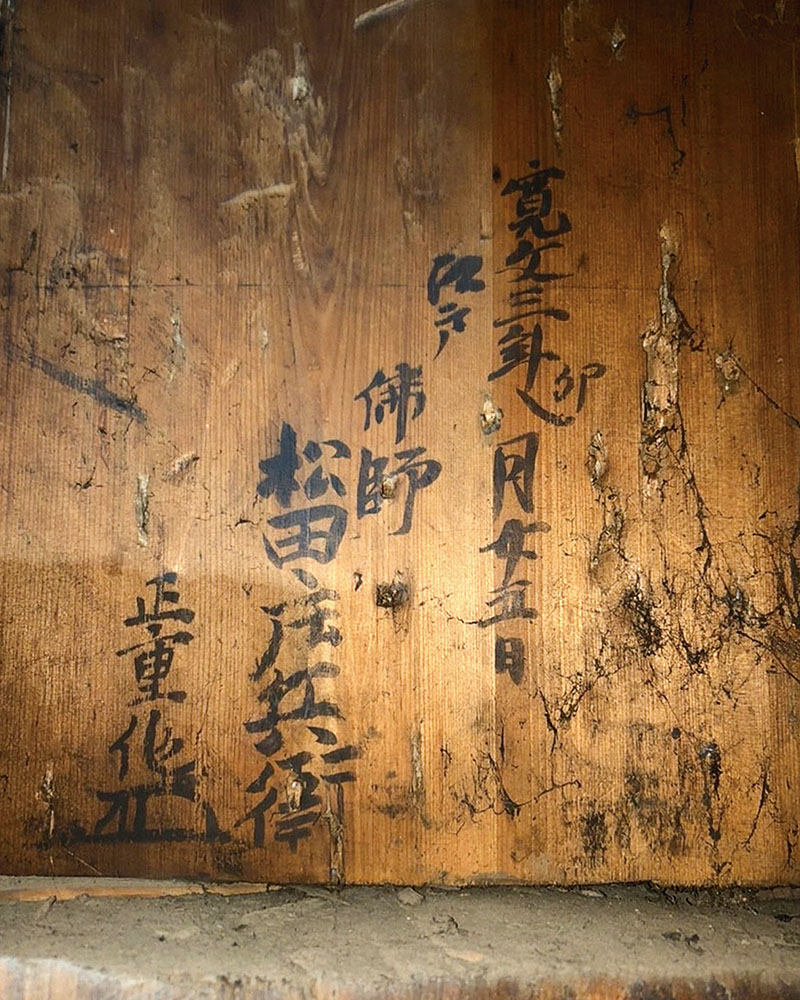 寛文三卯八月廿五日
江戸
佛師
松田庄兵衛
正重作